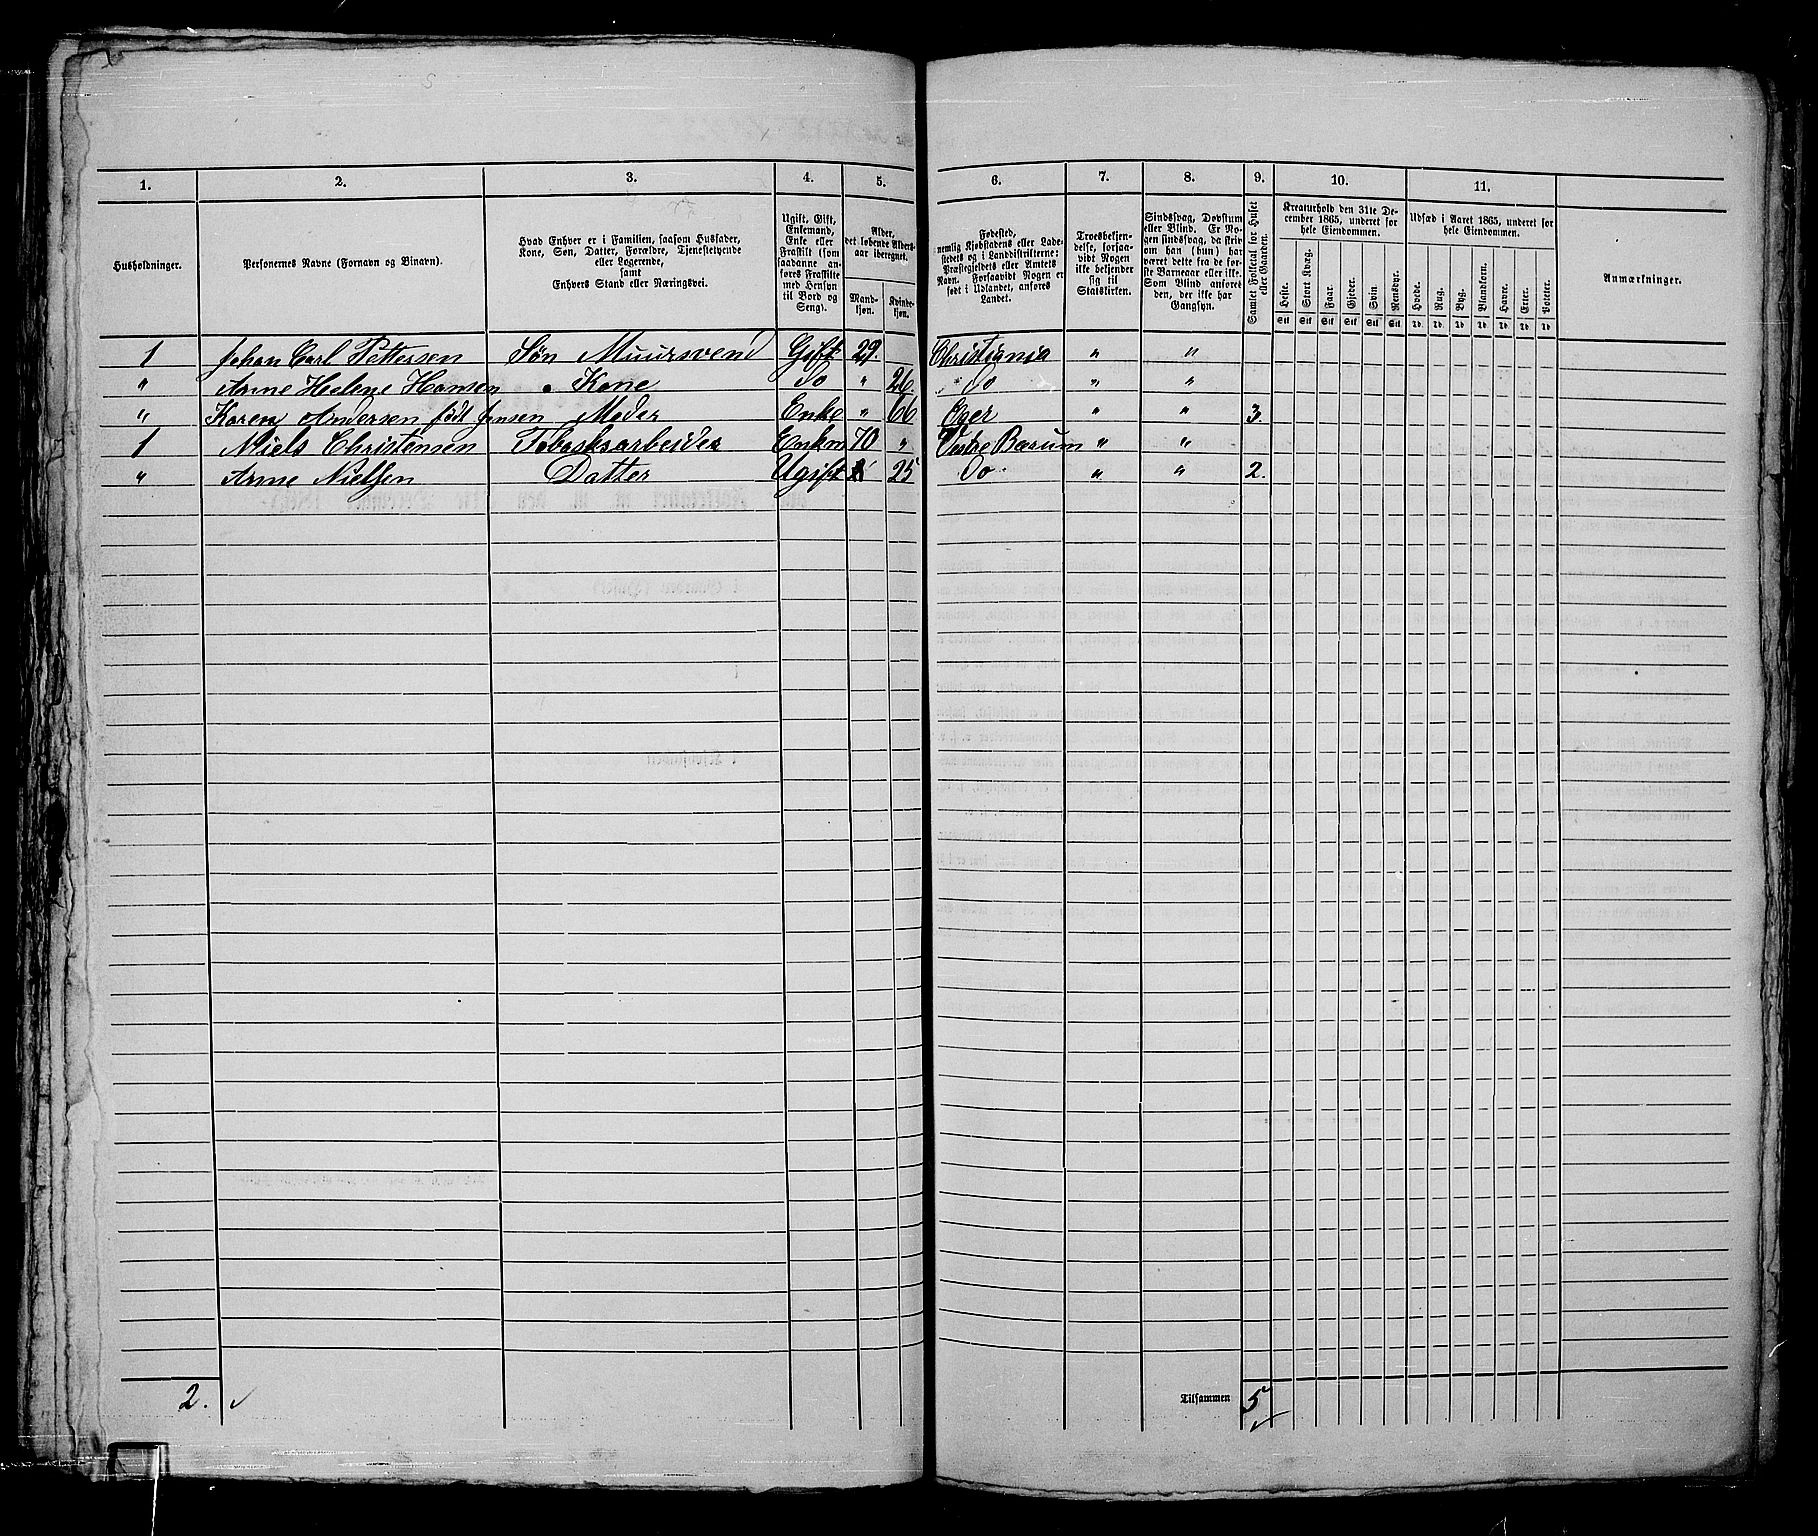 1. 2. 3. 4. 5. 6. 7. 8. 9. 10. 11.
Husholdninger.
Personernes Navne (Fornavn og Binavn).
Hvad Enhver er i Familien, saasom Husfader,
Kone, Søn, Datter, Forældre, Tjenestetyende
eller Logerende,
samt
Enhvers Stand eller Næringsvei.
Ugift, Gift,
Enkemand,
Enke eller
Fraskilt (som
saadanne an-
føres Fraskilte
med Hensyn
til Bord og
Seng).
Alder,
det løbende Alders-
aar iberegnet.
Mand-
kjøn.
Kvinde-
kjøn.
Fødested,
nemlig Kjøbstadens eller Lade-
stedets og i Landdistrikterne:
Præstegjeldets eller Amtets
Navn. Forsaavidt Nogen er
født i Udlandet, anføres
Landet.
Troesbekjen-
delse, forsaa-
vidt Nogen
ikke bekjender
sig til
Statskirken.
Sindssvag, Døvstum
eller Blind. Er No-
gen sindssvag, da skriv
om han (hun) har
været dette fra de før-
ste Barneaar eller ikke.
Som Blind anføres
den, der ikke har
Gangsyn.
Samlet Folketal for Huset
eller Gaarden.
Kreaturhold den 31te De-
cember 1865, underet for
hele Eiendommen.
Heste. Stort Kvæg. Faar. Gjeder. Svin. Rensdyr.
Stk Stk Stk Stk Stk Stk
Udsæd i Aaret 1865, underet for
hele Eiendommen.
Hvede. Rug. Byg. Blandkorn. Havre. Erter. Poteter.
Anmærkninger.
1 Johan Carl Pettersen Søn Muursvend Gift 29. Christiania " "
" Anne Helene Hansen Kone Do " 26. Do " "
" Karen Andersen født Jensen Moder Enke " 66 " " 3.
1 Niels Christensen Tobaksarbeider Enkm 70 " Vestre Bærum " "
" Anne Nielsen Datter Ugift 25 Do " " 2.
2.
Tilsammen 5